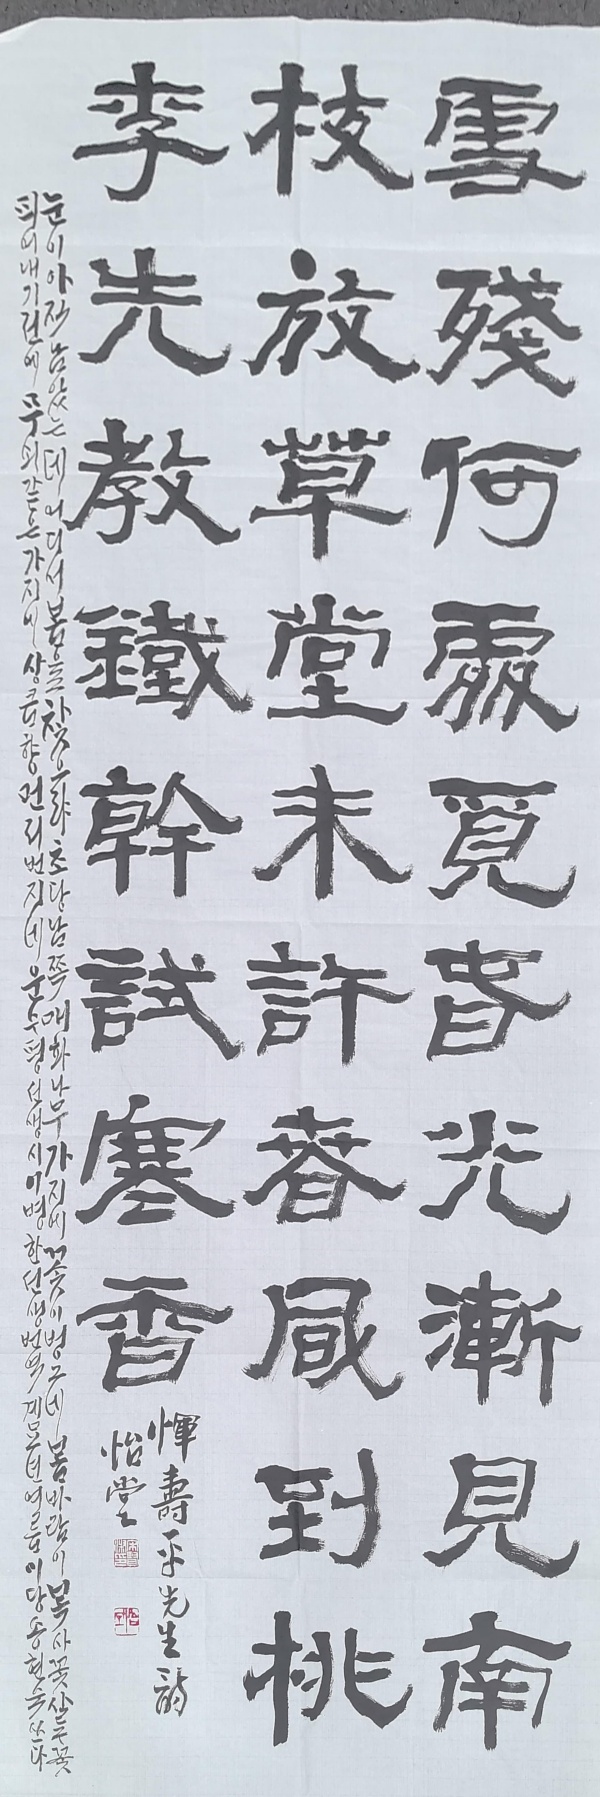 雪殘何處覓春光漸見南
枝放草堂未許春風到桃
李先教鐵幹試寒香
惲壽平先生詩
怡堂
눈이 아직 남았는데 어디서 봄을 찾으랴 초당 남쪽 매화나무 가지에 꽃이 벙그네 봄바람이 복사꽃 살구꽃
피어내기 전에 무쇠같은 가지에 상큼향 먼저 번지네 운수평선생시 이병한선생번역 계묘년 여름 이당 송현숙 쓰다